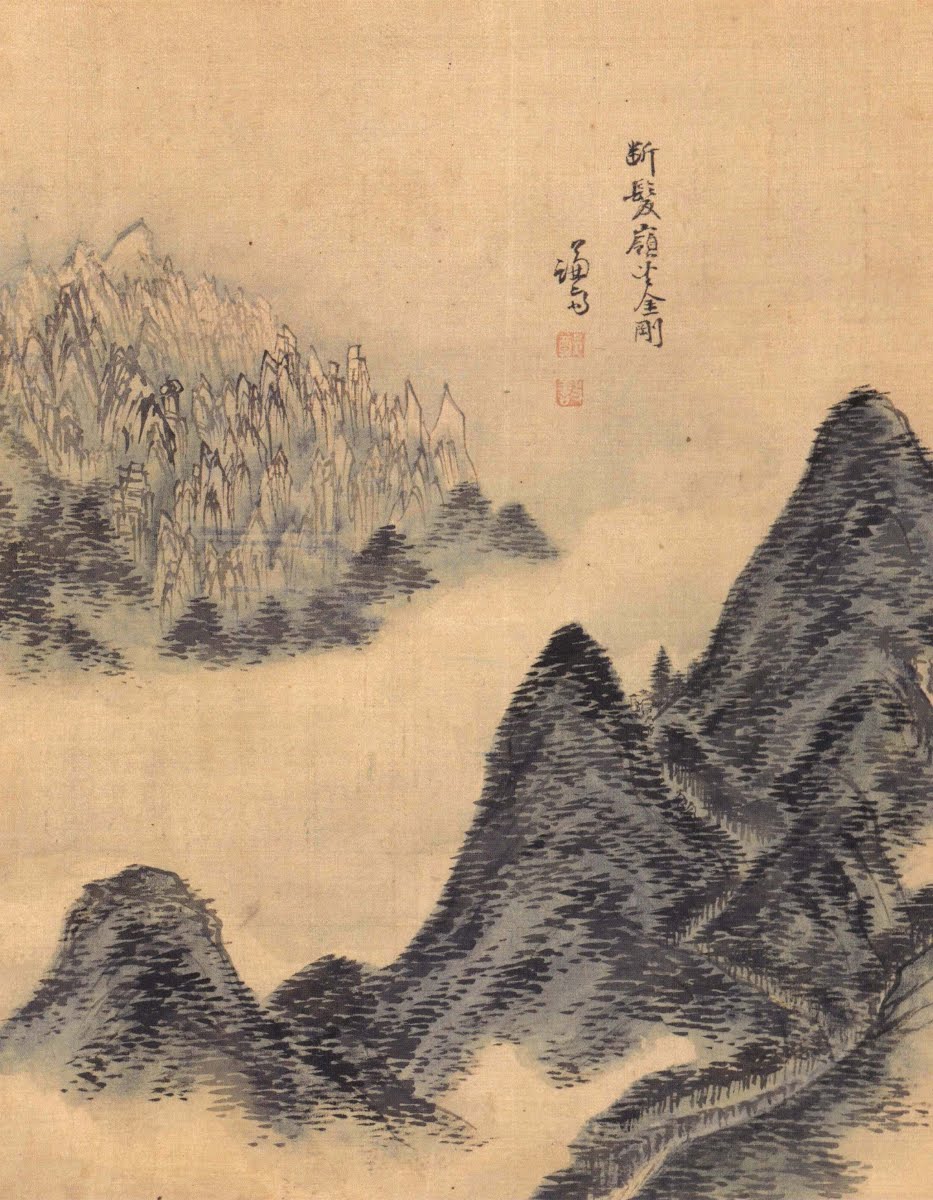 断髮嶺望金剛
謙齋